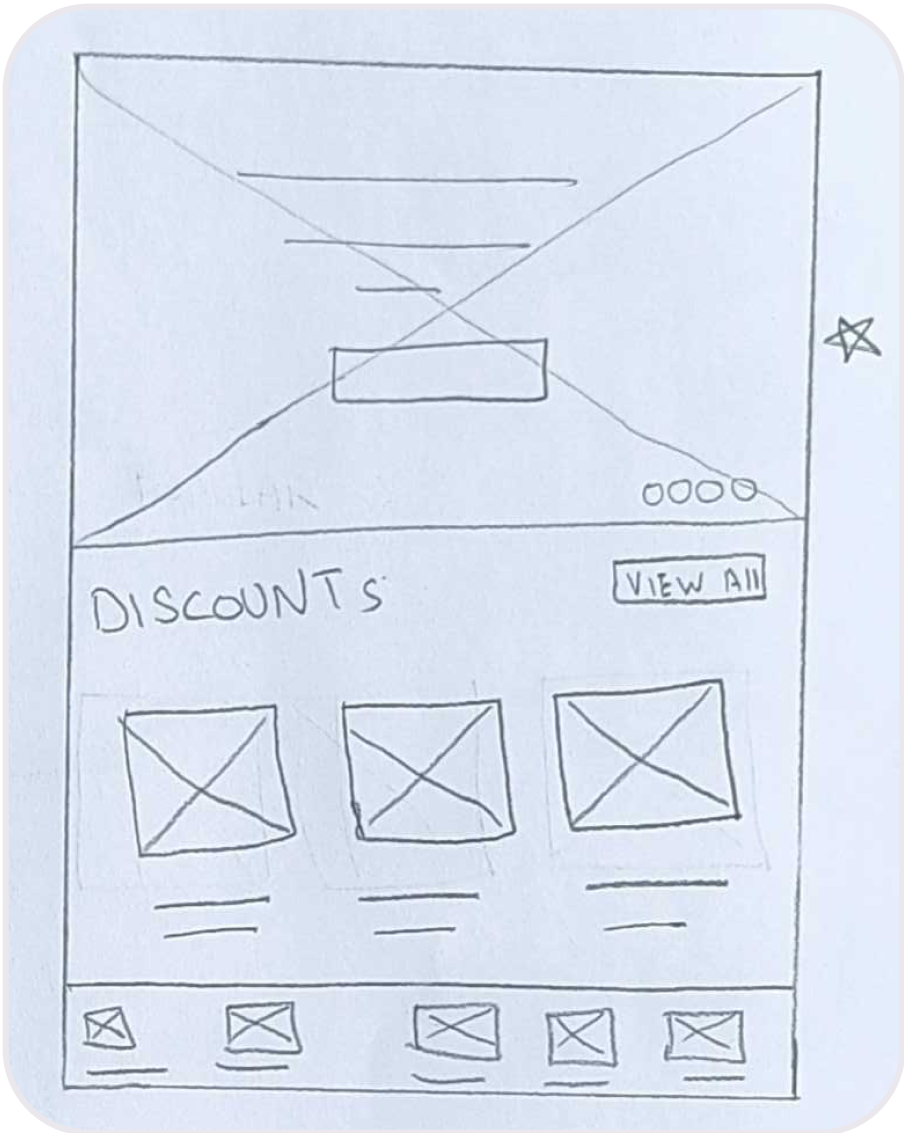 DISCOUNTs
VIEW All